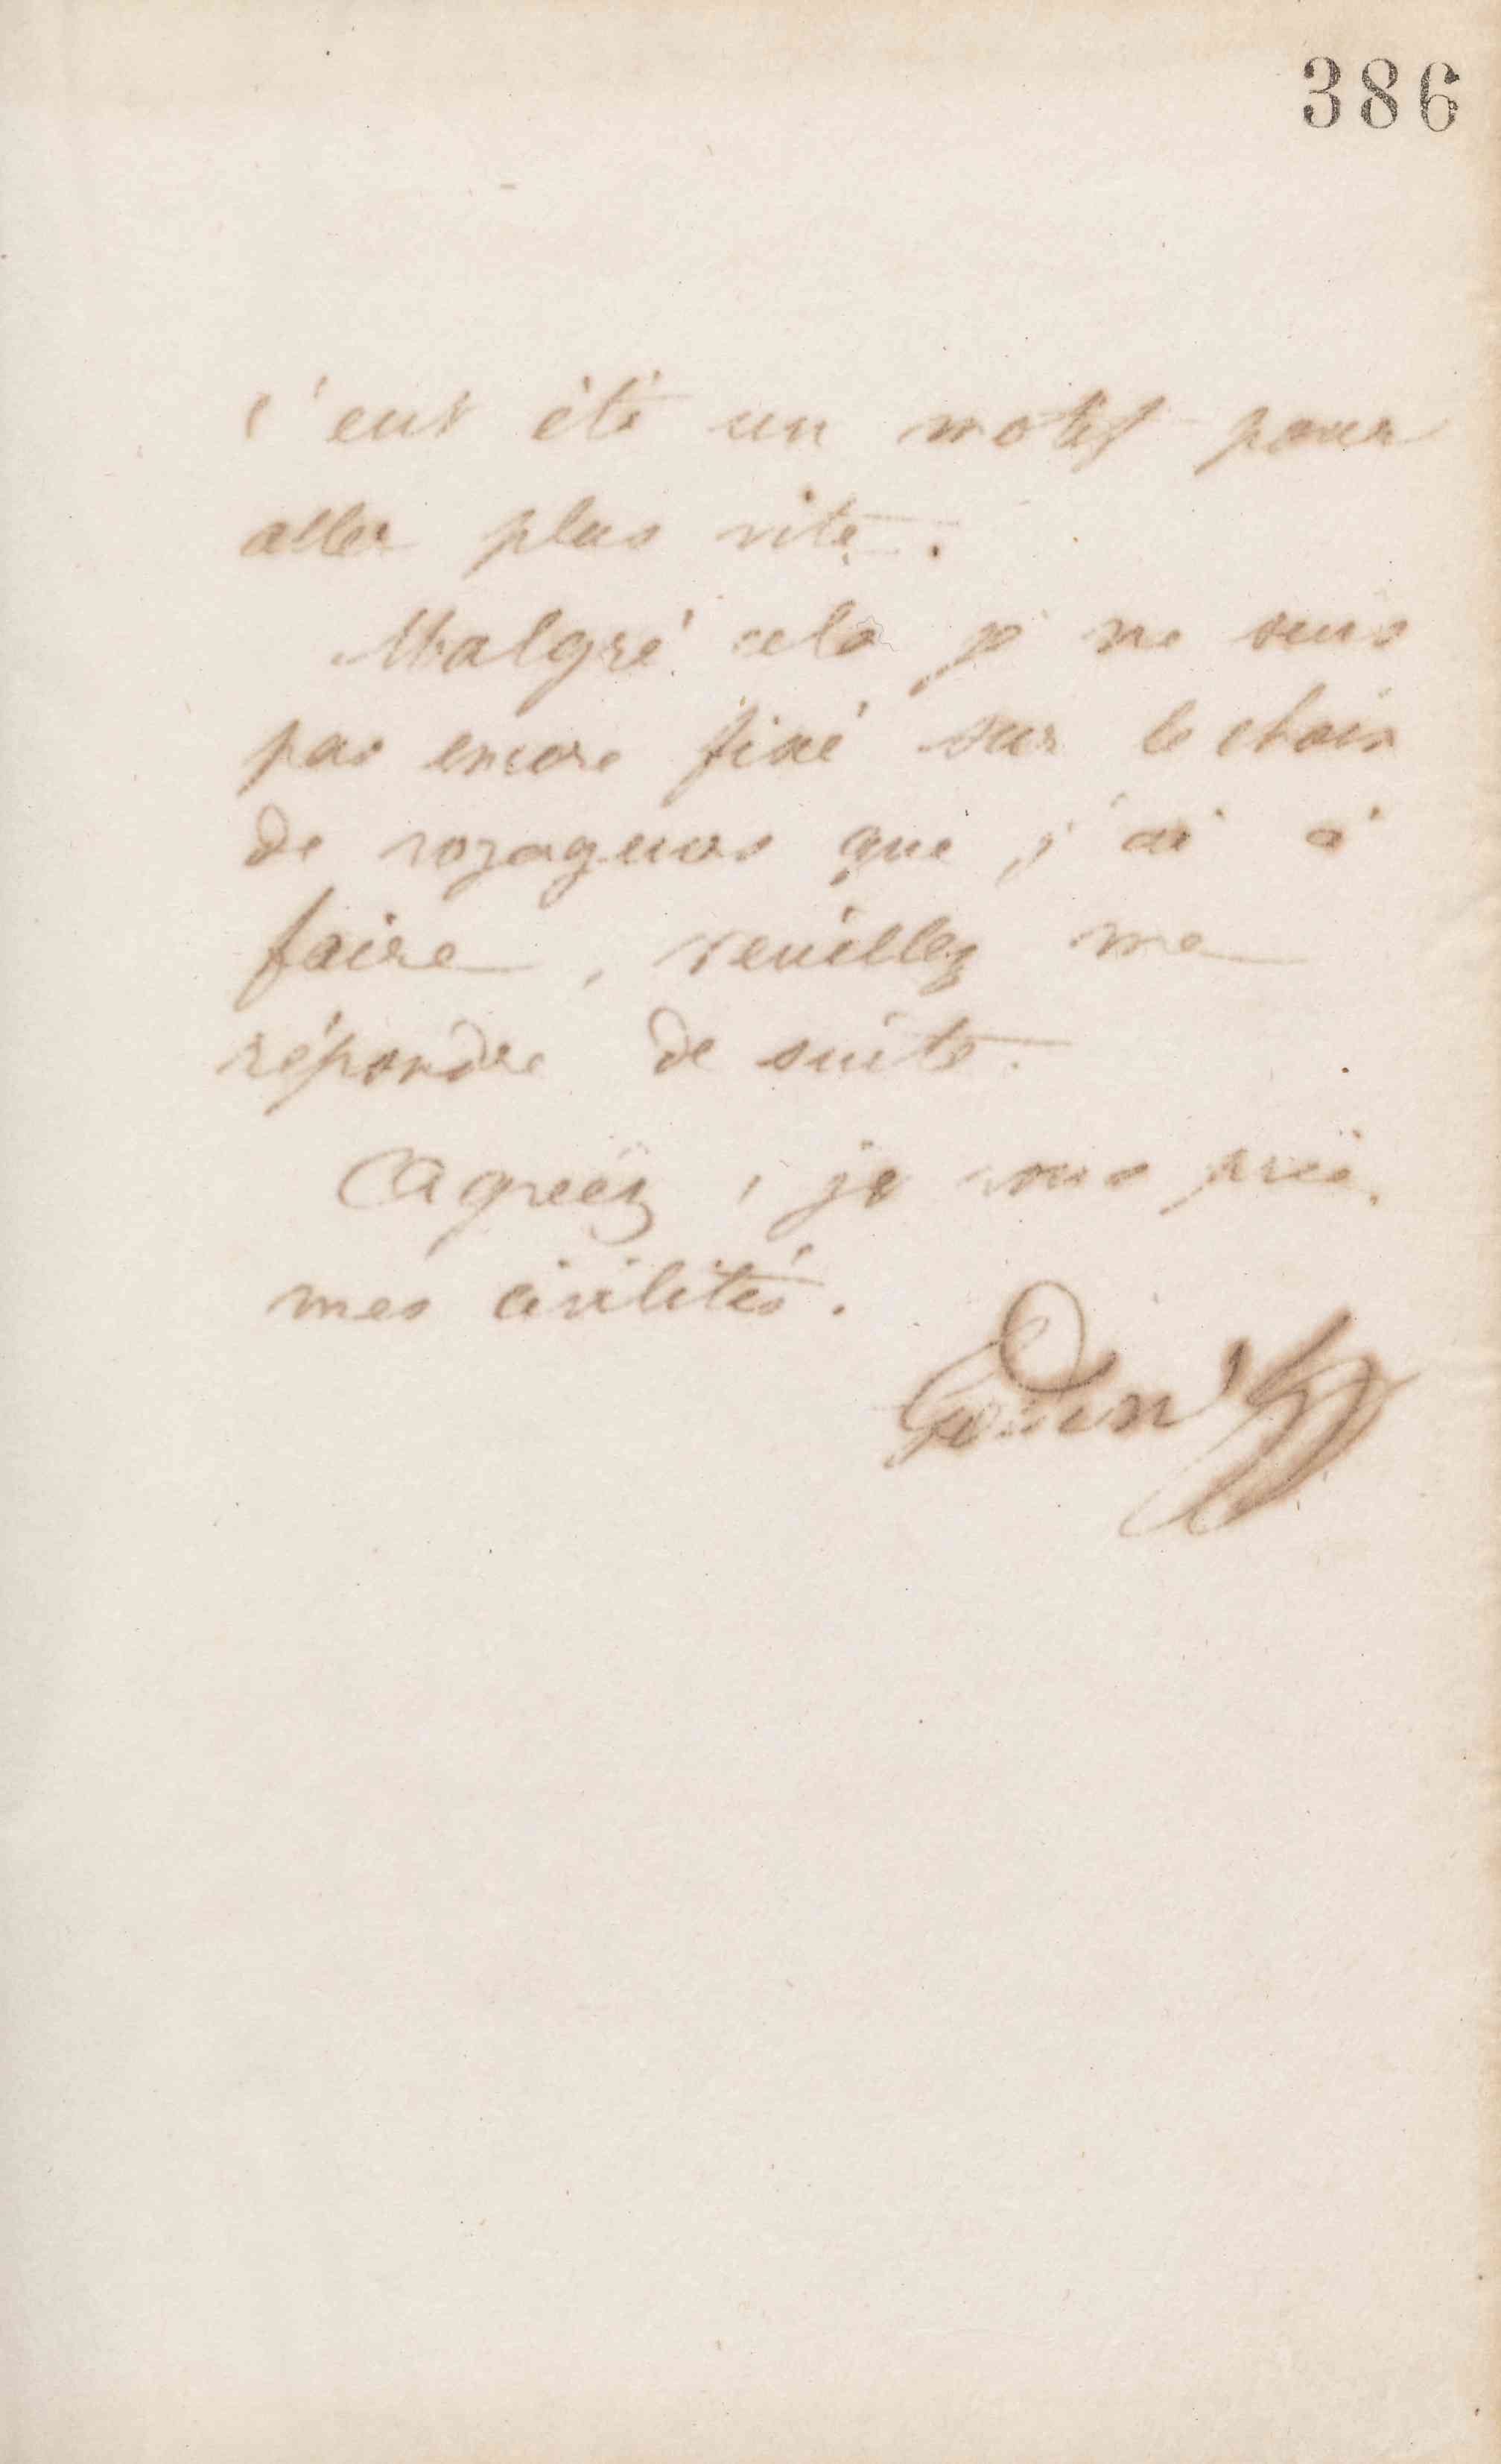 386
c'eut été un motif pour
aller plus vite.
Malgré cela je ne suis
pas encore fixé sur le choix
de voyageurs que j'ai à
faire, veuillez me
répondre de suite.
Agréez, je vous prie,
mes civilités.
Godin